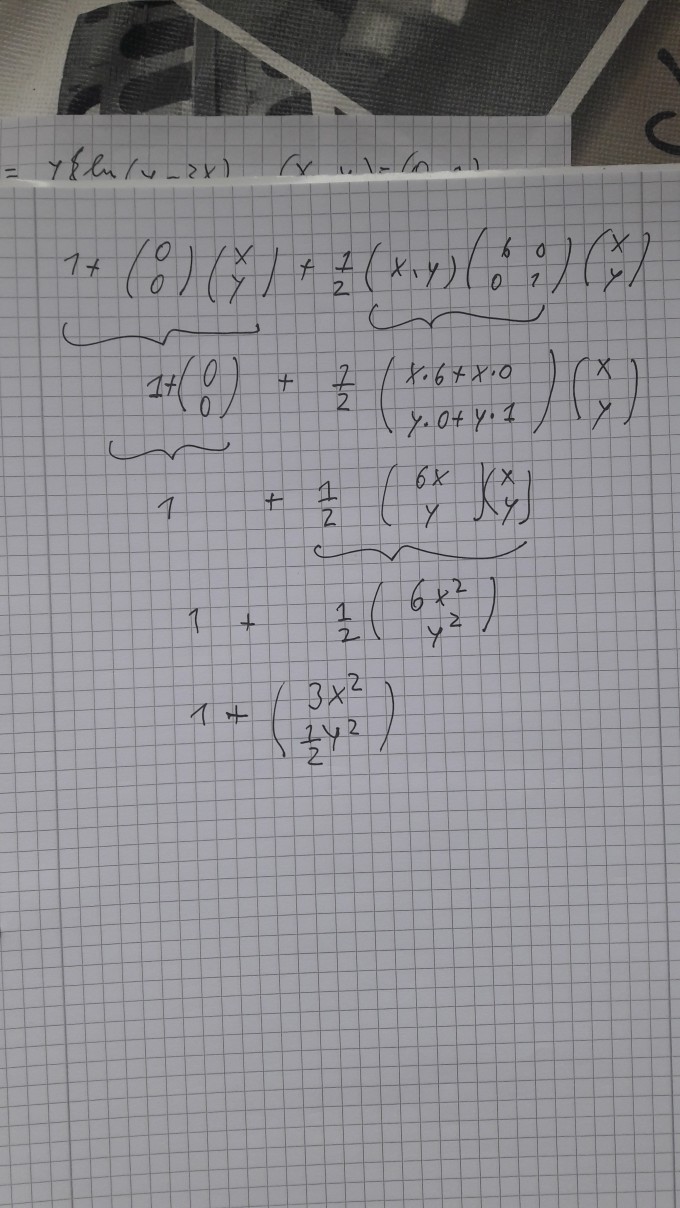 = y ln(y - 2x) (x, y) = (0,
1 + (0 0) (x y) + 1/2 (x, y) (6 0 0 1) (x y)
1 + (0 0) + 1/2 (x·6 + x·0 y·0 + y·1) (x y)
1 + 1/2 (6x y) (x y)
1 + 1/2 (6x² y²)
1 + (3x² 1/2 y²)